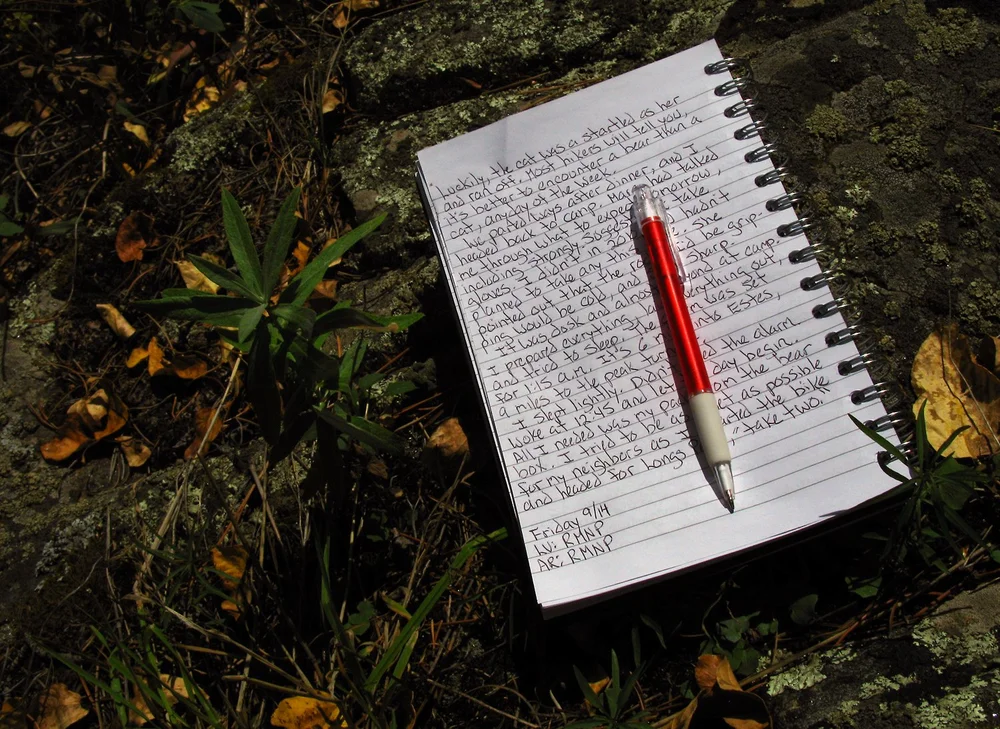 Luckily, the cat was a startled as her
and ran off. Most hikers will tell you,
it's better to encounter a bear than a
cat, anyday of the week.
We parted ways after dinner, and I
headed back to camp. Mark had talked
me through what to expect tomorrow,
including strongly suggesting take
gloves. I didn't this hadn't
planned to take any the
pointed out that the be grip-
it would be cold, and Sharp
It was dusk and almost beyond at camp.
I prepared everything everything out.
and tried to sleep. was set
for 1:15 a.m. It's 6 Estes,
a miles to the peak
I slept lightly, and the alarm
woke at 12:45 and day begin.
All I needed was my from the bear
box. I tried to be as as possible
for my neighbors as I the bike
and headed for Longs, "take two."
Friday 9/14
LV: RMNP
AR: RMNP